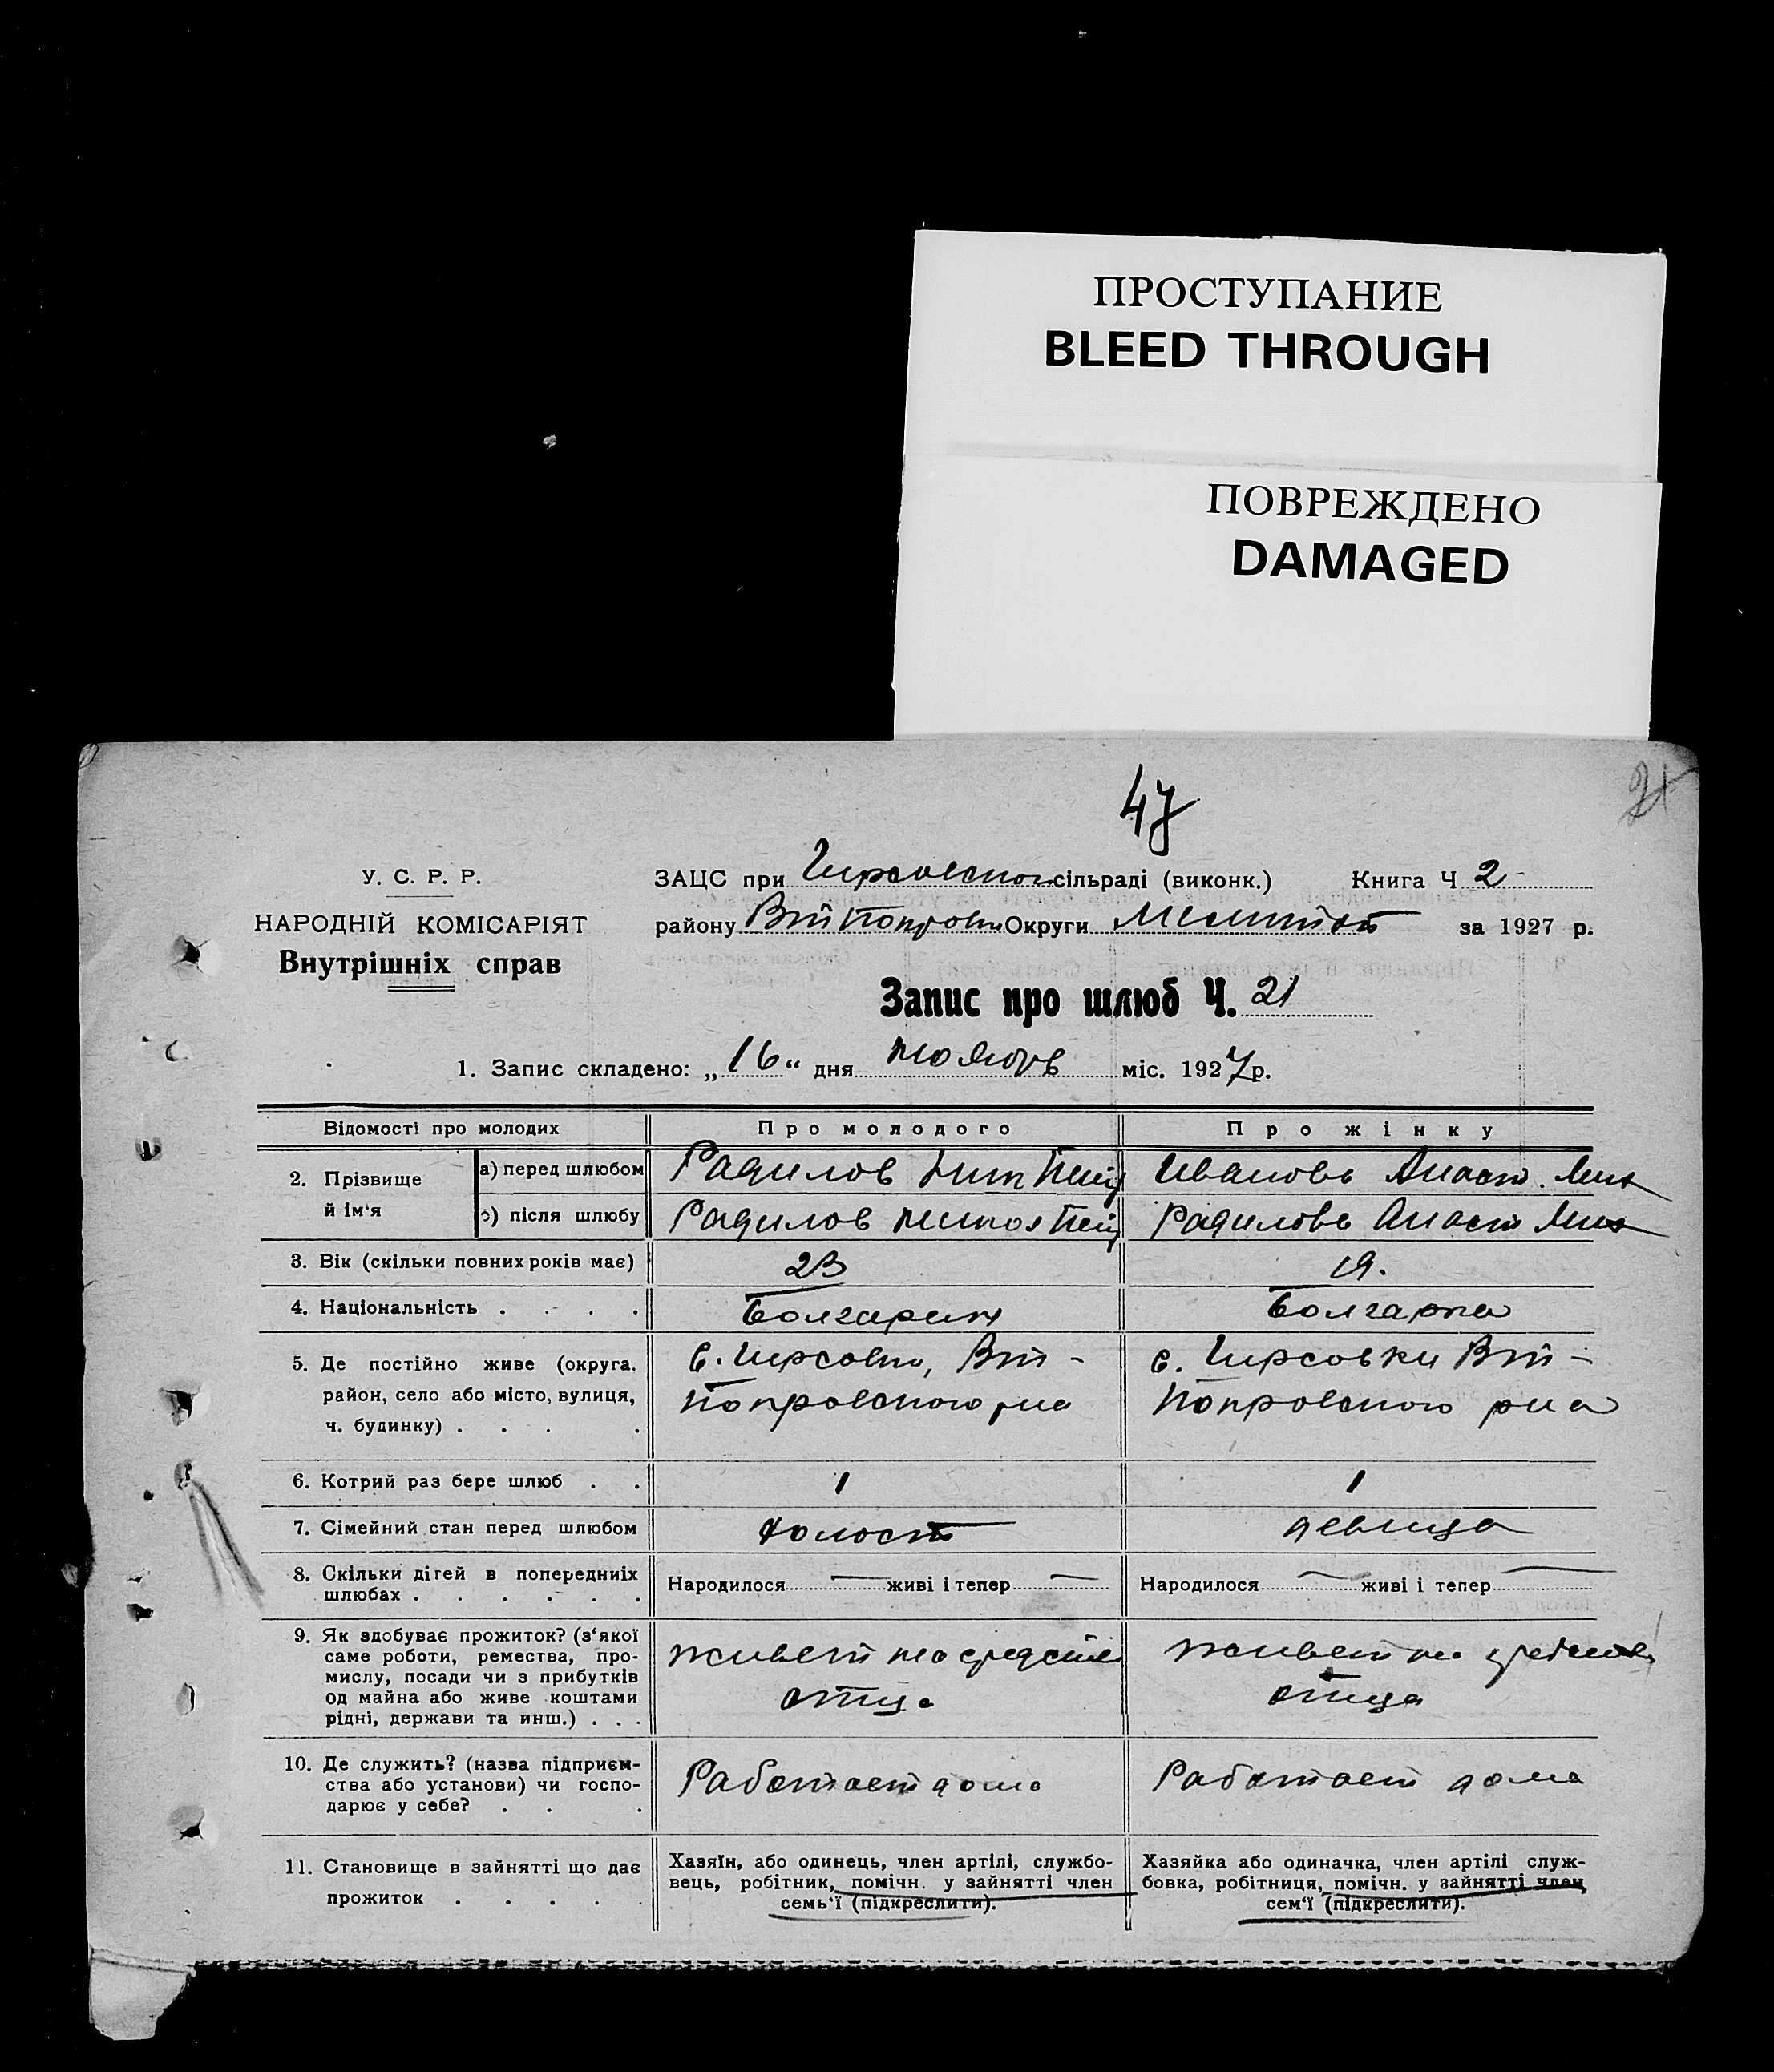 ПРОСТУПАНИЕ
BLEED THROUGH
ПОВРЕЖДЕНО
DAMAGED
47
21
У. С. Р. Р.
НАРОДНІЙ КОМІСАРІЯТ
Внутрішніх справ
ЗАЦС при Гирсовском сільраді (виконк.) Книга Ч 2
району Округи Мелитоп за 1927 р.
Запис про шлюб Ч. 21
1. Запис складено: „16“ дня ноября міс. 1927 р.
Відомості про молодих Про молодого Про жінку
2. Прізвище й ім‘я
а) перед шлюбом Радилов Ивановь Анаст. Мих
б) після шлюбу Радилов Радиловь Анаст Мих
3. Вік (скільки повних років має) 23 19.
4. Національність . . . . Болгарин Болгарка
5. Де постійно живе (округа, с. Гирсовки, Вт- с. Гирсовки Вт-
район, село або місто, вулиця, Покровского р-на Покровского р-на
ч. будинку) . . . .
6. Котрий раз бере шлюб . . 1 1
7. Сімейний стан перед шлюбом холост девица
8. Скільки дітей в попередніх Народилося — живі і тепер — Народилося — живі і тепер —
шлюбах . . . . . .
9. Як здобуває прожиток? (з‘якої живет на средства живет на средства
саме роботи, ремества, про- отца отца
мислу, посади чи з прибутків
од майна або живе коштами
рідні, держави та инш.) . . .
10. Де служить? (назва підприєм- Работает дома Работает дома
ства або установи) чи госпо-
дарює у себе? . . .
11. Становище в зайнятті що дає Хазяїн, або одинець, член артілі, службо- Хазяйка або одиначка, член артілі служ-
прожиток . . . . вець, робітник, помічн. у зайнятті член бовка, робітниця, помічн. у зайнятті член
семь‘ї (підкреслити). сем‘ї (підкреслити).